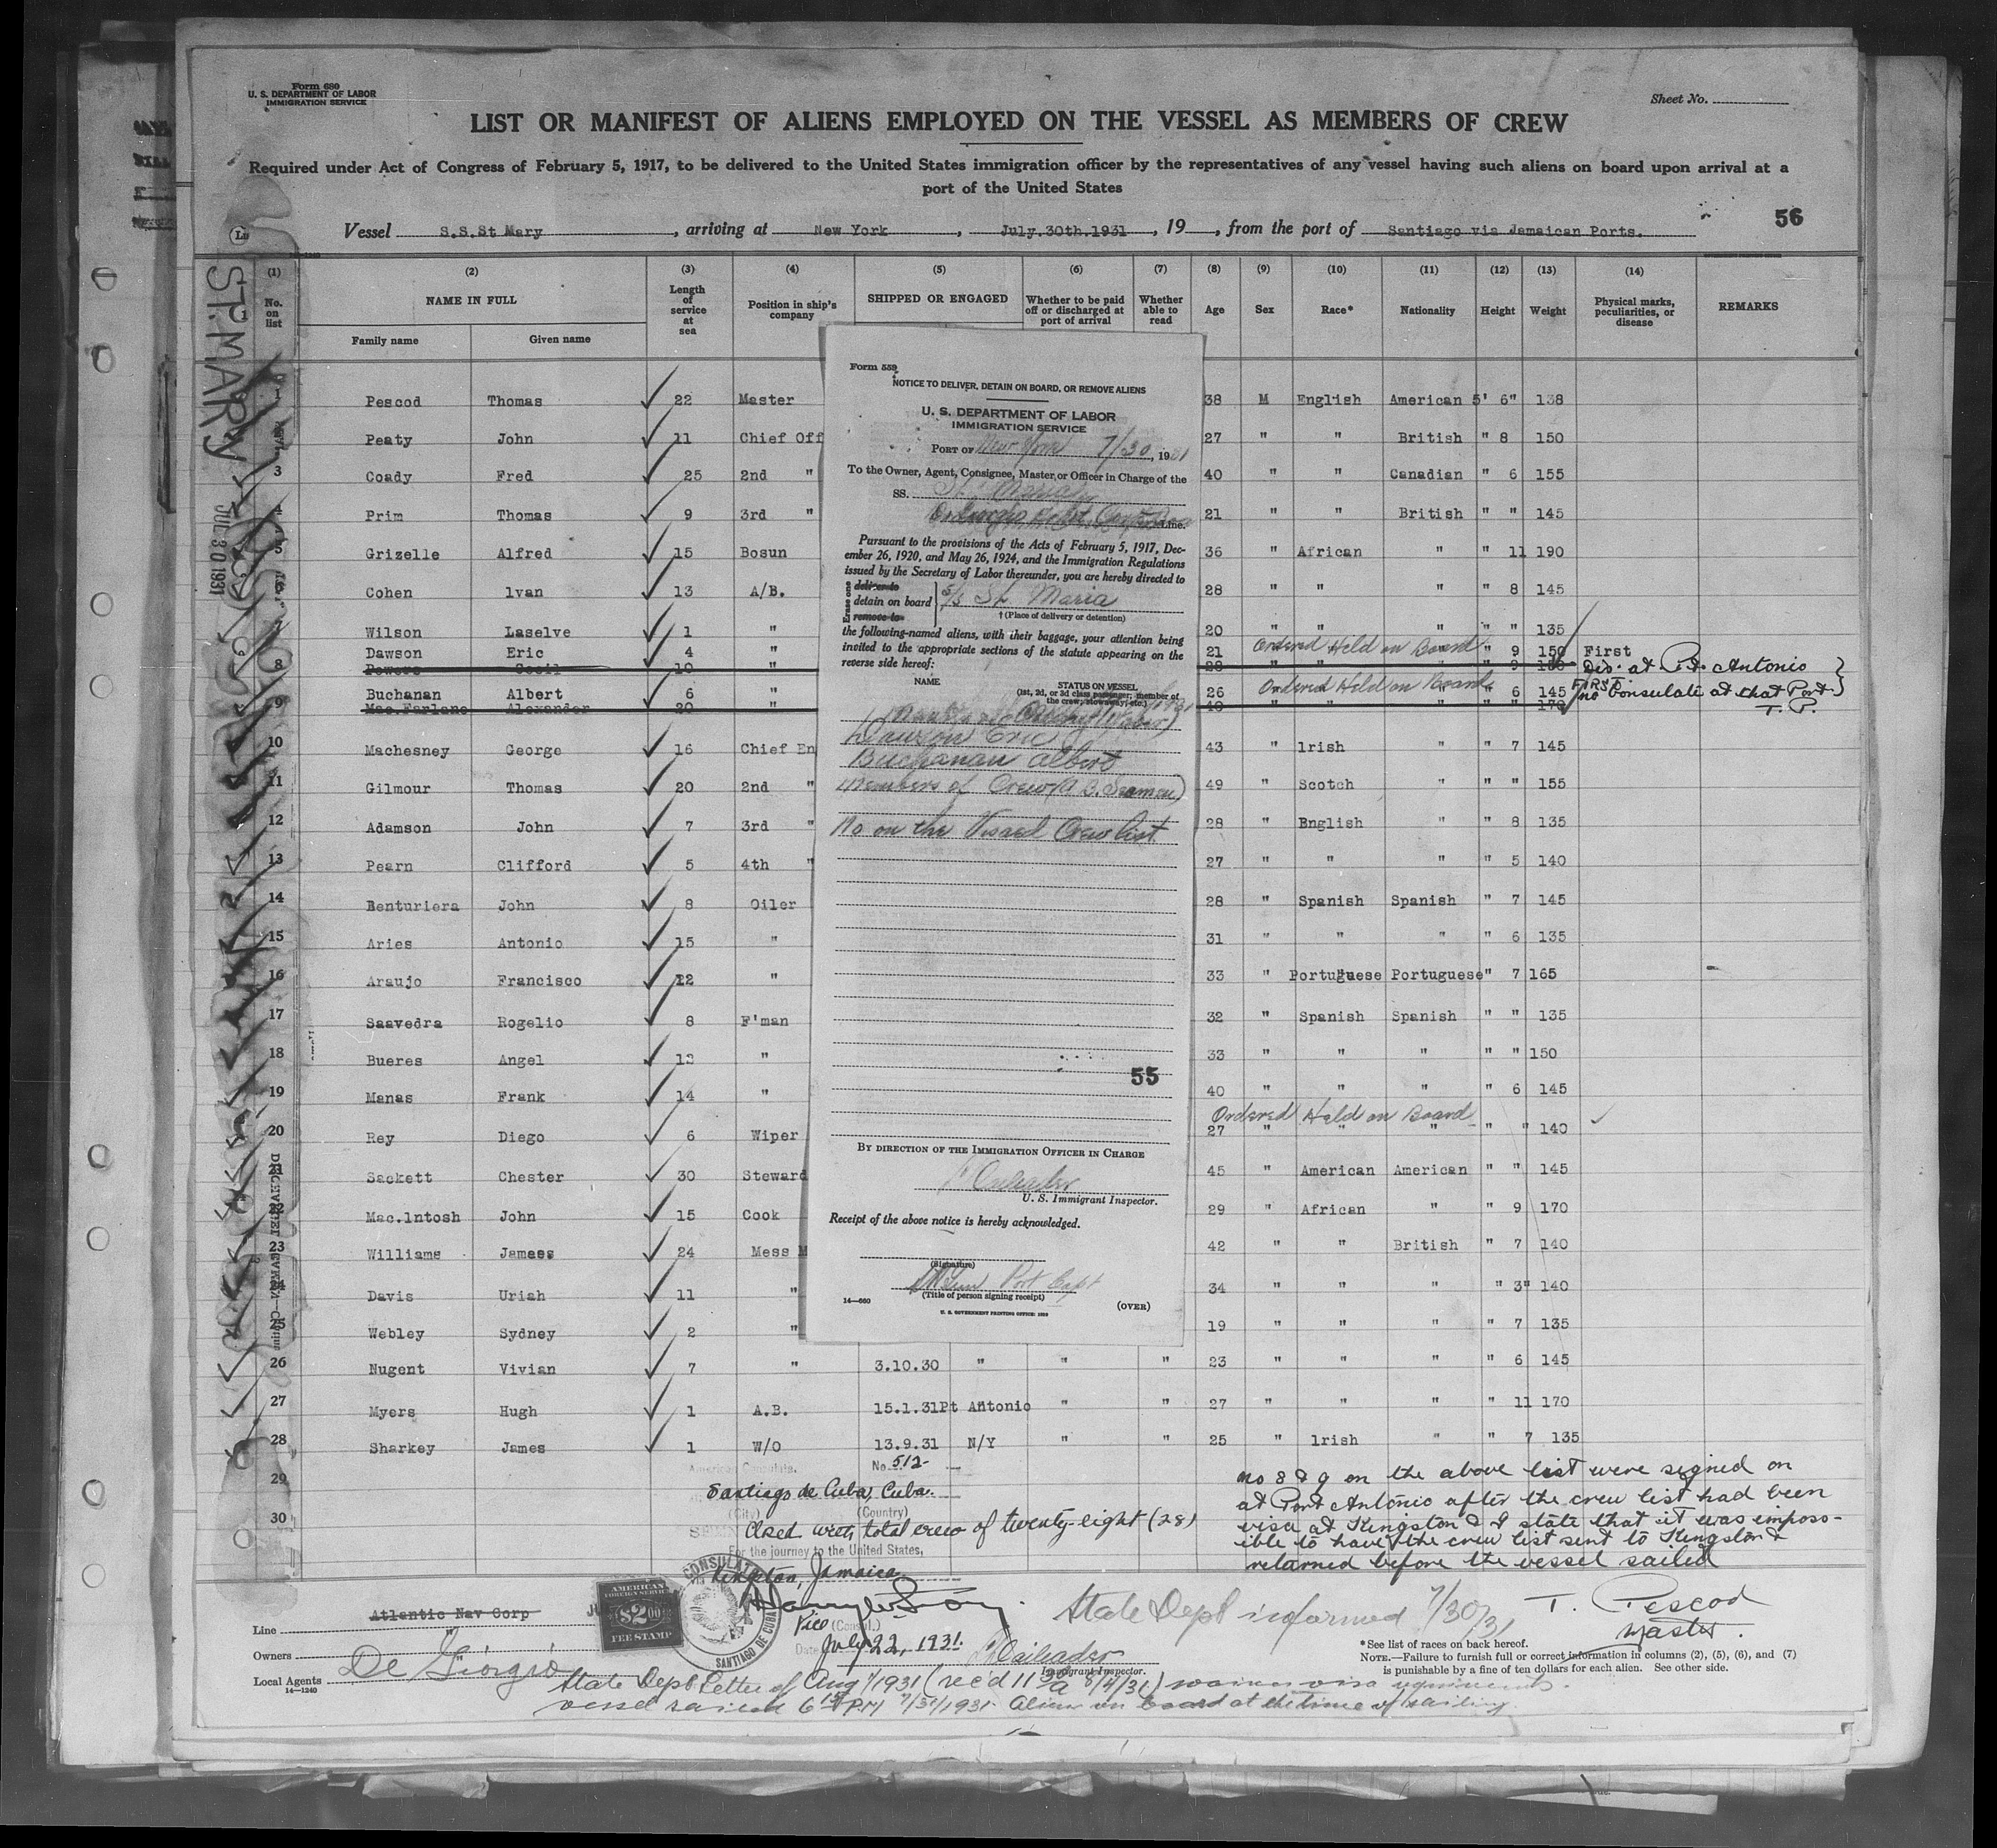 Form 680
U. S. DEPARTMENT OF LABOR
IMMIGRATION SERVICE
Sheet No.
LIST OR MANIFEST OF ALIENS EMPLOYED ON THE VESSEL AS MEMBERS OF CREW
Required under Act of Congress of February 5, 1917, to be delivered to the United States immigration officer by the representatives of any vessel having such aliens on board upon arrival at a
port of the United States
56
Vessel S.S.St Mary, arriving at New York, July.30th.1931, 19, from the port of Santiago via Jamaican Ports.
ST. MARY
JUL 30 1931
(1) (2) (3) (4) (5) (6) (7) (8) (9) (10) (11) (12) (13) (14)
No. on list NAME IN FULL Length of service at sea Position in ship's company SHIPPED OR ENGAGED Whether to be paid off or discharged at port of arrival Whether able to read Age Sex Race* Nationality Height Weight Physical marks, peculiarities, or disease REMARKS
Family name Given name
1 Pescod Thomas 22 Master 38 M English American 5' 6" 138
Peaty John 11 Chief Off 27 " " British " 8 150
3 Coady Fred 25 2nd " 40 " " Canadian " 6 155
4 Prim Thomas 9 3rd " 21 " " British " " 145
5 Grizelle Alfred 15 Bosun 36 " African " " 11 190
Cohen Ivan 13 A/B. 28 " " " " 8 145
7 Wilson Laselve 1 " 20 " " " " " 135
Dawson Eric 4 " 21 Ordered Held on Board " 9 150 First
8 Powers Cecil 10 " 28 " " " " 9 150 Dis. at Pt. Antonio
Buchanan Albert 6 " 26 Ordered Held on Board " 6 145 FIRST no Consulate at that Port
9 Mac.Farlane Alexander 20 " 40 " " " " " 170 T. P.
10 Machesney George 16 Chief En 43 " Irish " " 7 145
11 Gilmour Thomas 20 2nd " 49 " Scotch " " " 155
12 Adamson John 7 3rd " 28 " English " " 8 135
13 Pearn Clifford 5 4th " 27 " " " " 5 140
14 Benturiera John 8 Oiler 28 " Spanish Spanish " 7 145
15 Aries Antonio 15 " 31 " " " " 6 135
16 Araujo Francisco 12 " 33 " Portuguese Portuguese " 7 165
17 Saavedra Rogelio 8 F'man 32 " Spanish Spanish " " 135
18 Bueres Angel 13 " 33 " " " " " 150
19 Manas Frank 14 " 40 " " " " 6 145
Ordered Held on Board
20 Rey Diego 6 Wiper 27 " " " " " 140
21 Sackett Chester 30 Steward 45 " American American " " 145
22 Mac.Intosh John 15 Cook 29 " African " " 9 170
23 Williams Jamees 24 Mess M 42 " " British " 7 140
24 Davis Uriah 11 " 34 " " " " 3" 140
25 Webley Sydney 2 " 19 " " " " 7 135
26 Nugent Vivian 7 " 3.10.30 " " " 23 " " " " 6 145
27 Myers Hugh 1 A.B. 15.1.31 Pt Antonio " " 27 " " " " 11 170
28 Sharkey James 1 W/O 13.9.31 N/Y " " 25 " Irish " " 7 135
29
30
Form 559
NOTICE TO DELIVER, DETAIN ON BOARD, OR REMOVE ALIENS
U. S. DEPARTMENT OF LABOR
IMMIGRATION SERVICE
PORT OF New York 7/30, 1931
To the Owner, Agent, Consignee, Master, or Officer in Charge of the
SS.
Line.
Pursuant to the provisions of the Acts of February 5, 1917, Dec-
ember 26, 1920, and May 26, 1924, and the Immigration Regulations
issued by the Secretary of Labor thereunder, you are hereby directed to
Erase one
deliver to
detain on board S/S St. Maria
remove to
† (Place of delivery or detention)
the following-named aliens, with their baggage, your attention being
invited to the appropriate sections of the statute appearing on the
reverse side hereof:
NAME
STATUS ON VESSEL
(1st, 2d, or 3d class passenger, member of
the crew, stowaway, etc.)
Dawson Eric
Buchanan Albert
Members of Crew (A B. Seamen)
No on the Visaed Crew list
55
BY DIRECTION OF THE IMMIGRATION OFFICER IN CHARGE
U. S. Immigrant Inspector.
Receipt of the above notice is hereby acknowledged.
(Signature)
Port Capt
(Title of person signing receipt)
14—660
U. S. GOVERNMENT PRINTING OFFICE
(OVER)
American Consulate.
No. 512
Santiago de Cuba, Cuba.
(City) (Country)
Closed with total crew of twenty-eight (28)
For the journey to the United States,
Kingston, Jamaica
Vice (Consul.)
Date July 22, 1931.
AMERICAN
FOREIGN SERVICE
$2.00
FEE STAMP
CONSULATE
SANTIAGO DE CUBA
no 8 & 9 on the above list were signed on
at Port Antonio after the crew list had been
visa at Kingston & I state that it was imposs-
ible to have the crew list sent to Kingston &
returned before the vessel sailed
T. Pescod
Master.
State Dept informed 7/30/31
Immigrant Inspector.
Line Atlantic Nav Corp
Owners
Local Agents De Giorgio
14—1240
*See list of races on back hereof.
NOTE.—Failure to furnish full or correct information in columns (2), (5), (6), and (7)
is punishable by a fine of ten dollars for each alien. See other side.
State Dept Letter of Aug 1/1931 (rec'd 11 30 a 8/4/31) waives visa
vessel sailed 6 15 PM 7/31/1931 Aliens on board at the time of sailing.